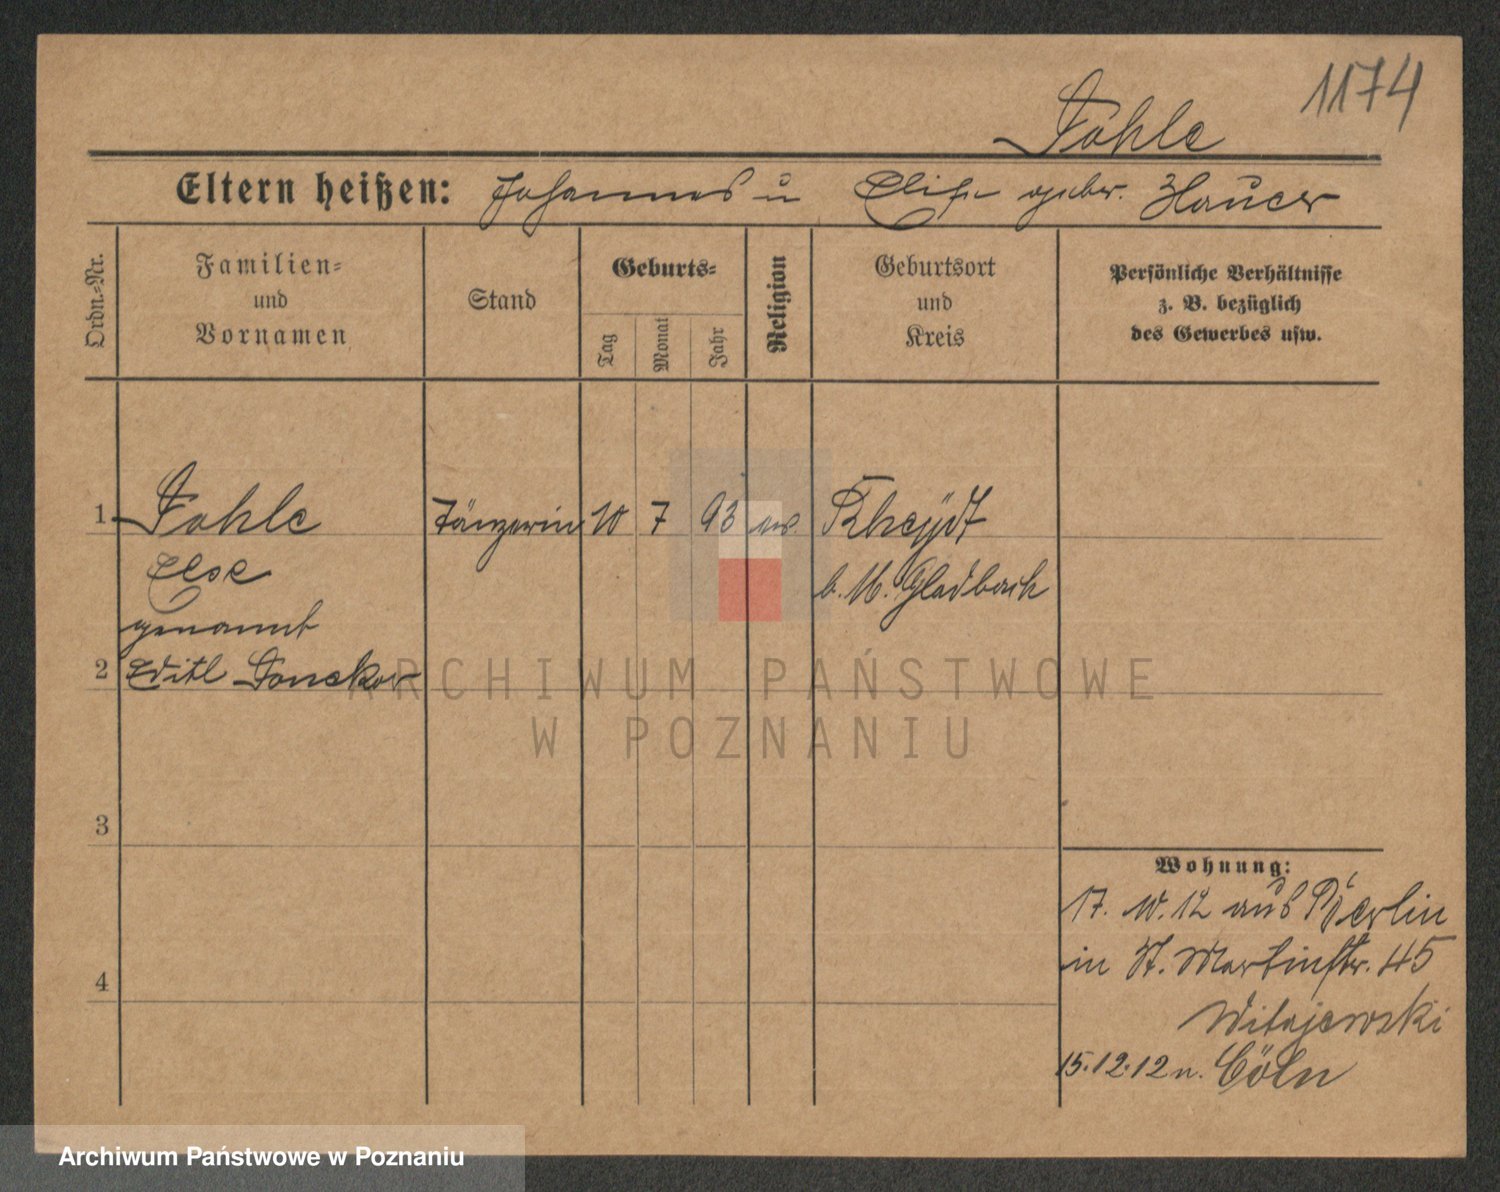 1174
Fohle
Eltern heißen: Johannes u Elise geber. Hauser
Ordn.-Nr.
Familien-
und
Vornamen
Stand
Geburts-
Tag
Monat
Jahr
Religion
Geburtsort
und
Kreis
Persönliche Verhältnisse
z. B. bezüglich
des Gewerbes usw.
1 Fohle Tänzerin 10 7 93 Rheydt
Else b. M. Gladbach
genannt
2
3
4
Wohnung:
17. 10. 12 aus Berlin
in St. Martinstr. 45
Witajewski
15.12.12 n. Cöln
ARCHIWUM PAŃSTWOWE
W POZNANIU
Archiwum Państwowe w Poznaniu